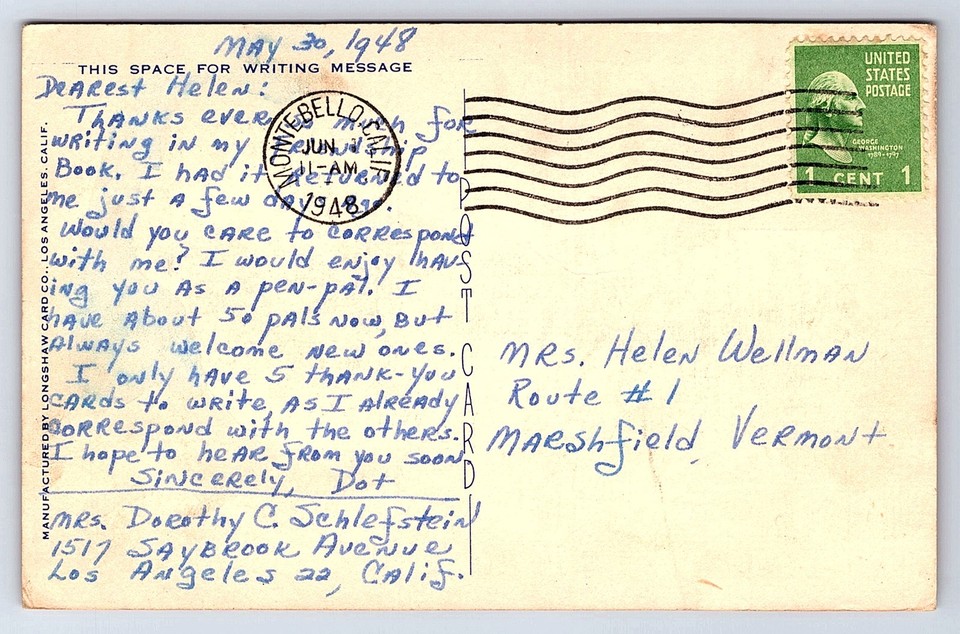 May 30, 1948
THIS SPACE FOR WRITING MESSAGE
Dearest Helen:
Thanks ever so much for
writing in my Friendship
Book. I had it returned to
me just a few days ago.
Would you care to correspond
with me? I would enjoy hav-
ing you as a pen-pal. I
have about 50 pals now, but
always welcome new ones.
I only have 5 thank-you
cards to write, as I already
correspond with the others.
I hope to hear from you soon.
Sincerely, Dot
Mrs. Dorothy C. Schlefstein
1517 Saybrook Avenue
Los Angeles 22, Calif.
MANUFACTURED BY LONGSHAW CARD CO., LOS ANGELES, CALIF.
MONTEBELLO, CALIF.
JUN 1
11-AM
1948
POST CARD
UNITED
STATES
POSTAGE
GEORGE
WASHINGTON
1789-1797
1 CENT 1
Mrs. Helen Wellman
Route #1
Marshfield, Vermont